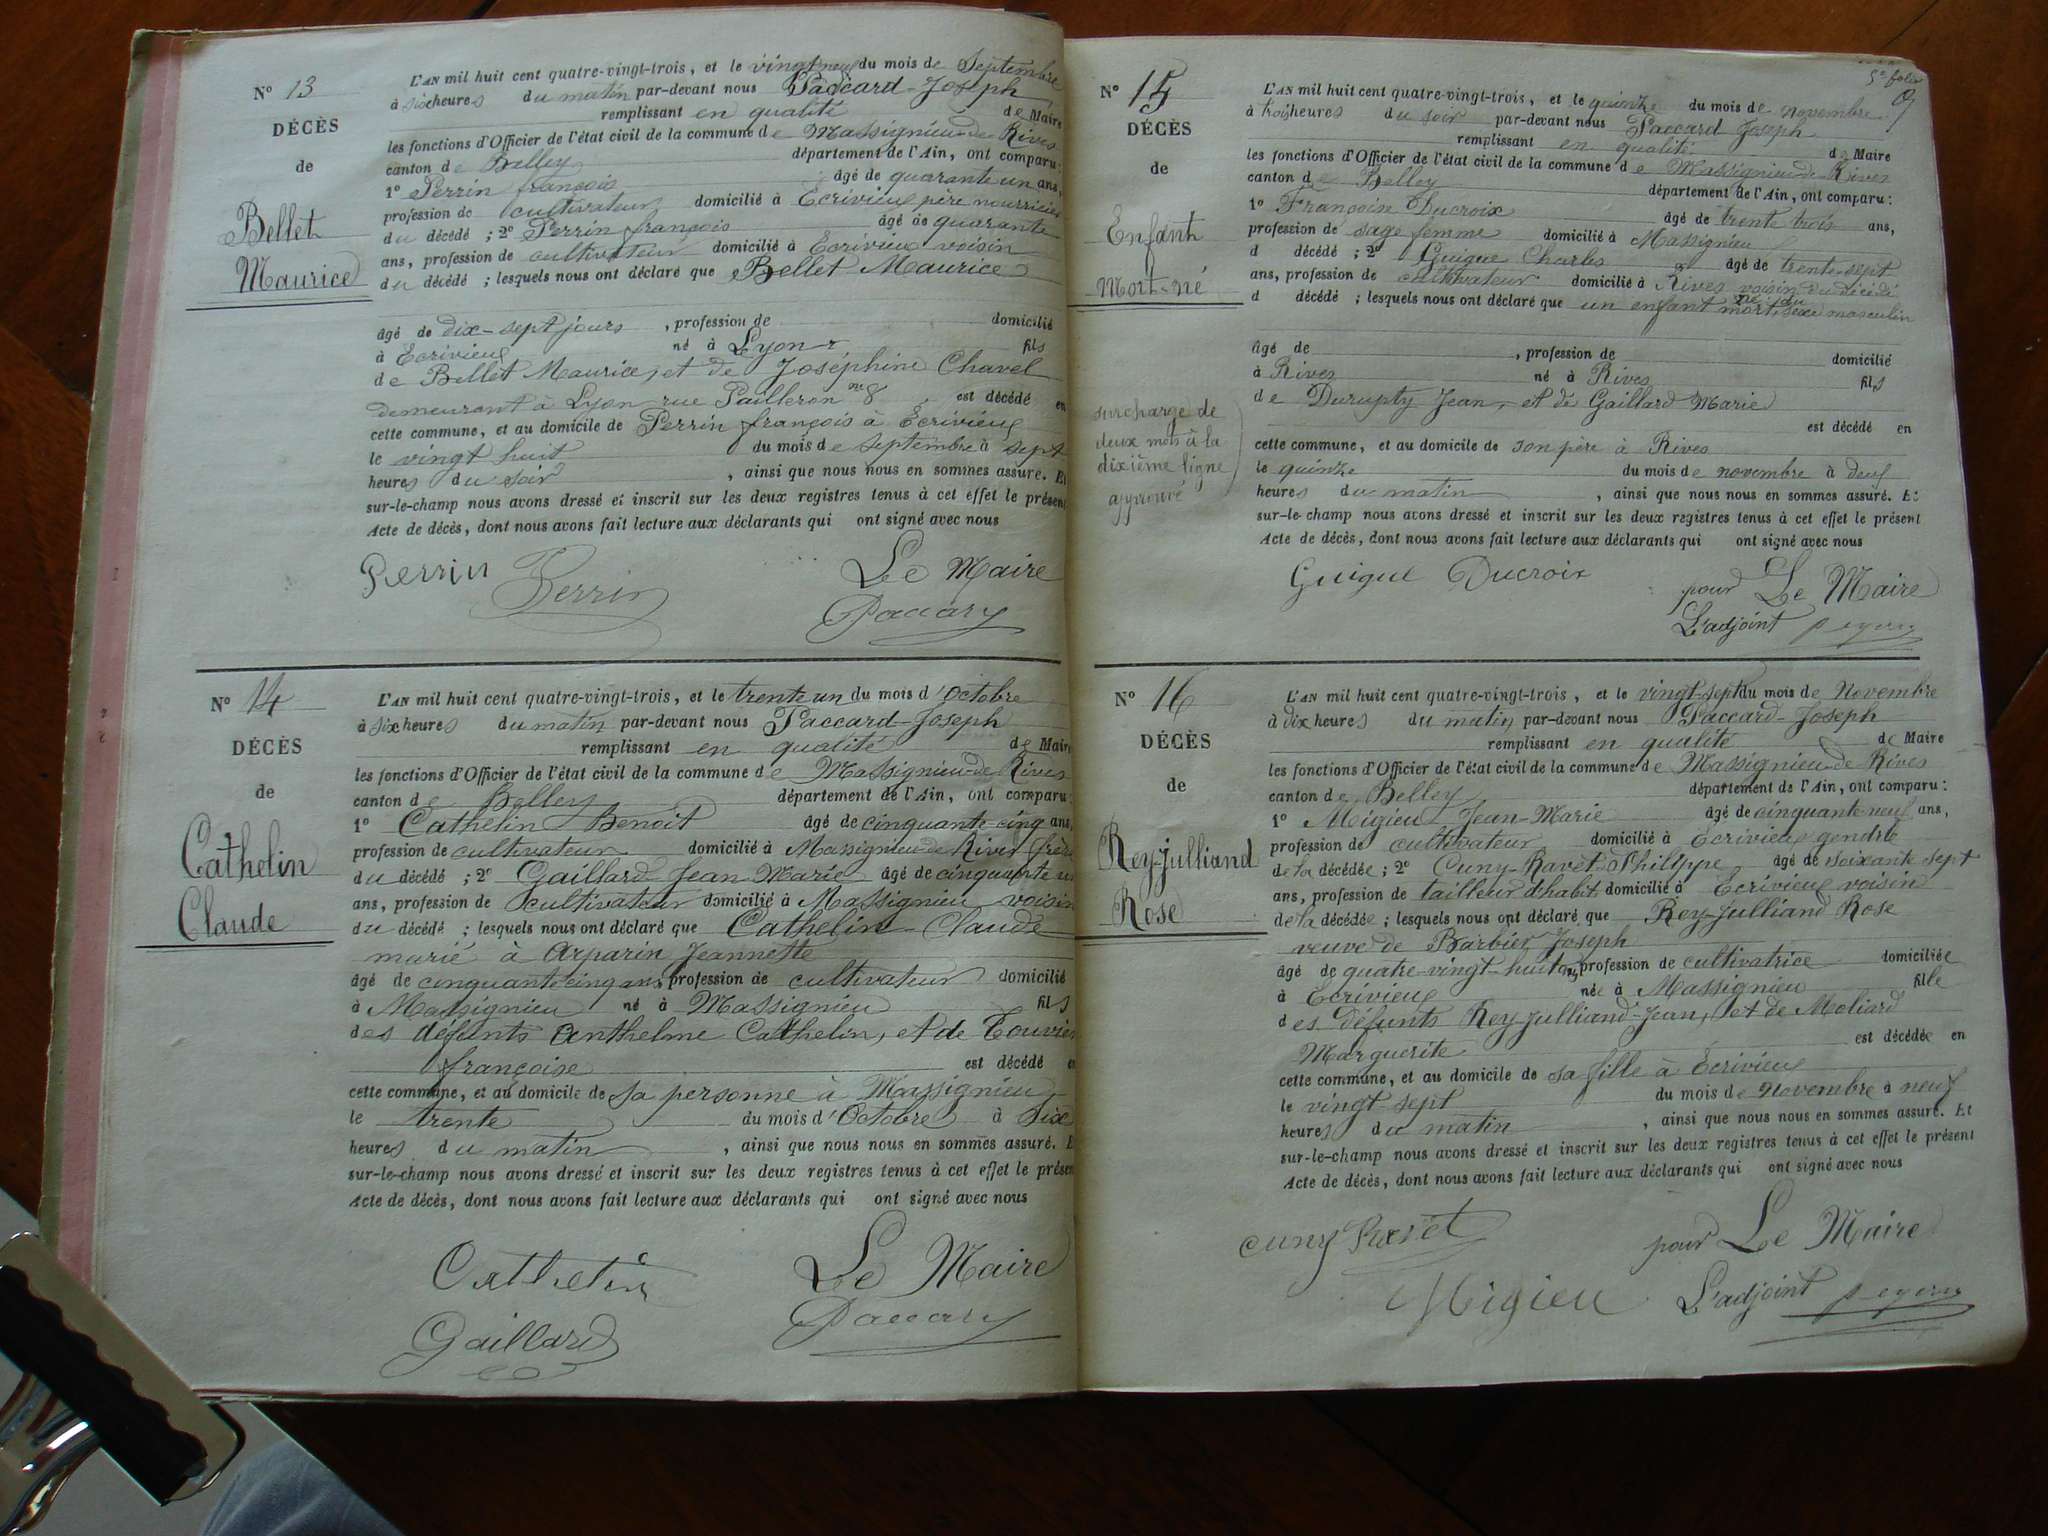 N° 13
DÉCÈS
de
Bellet
Maurice
L'AN mil huit cent quatre-vingt-trois, et le vingt neuf du mois de Septembre
à six heures du matin par-devant nous Paccard Joseph
remplissant en qualité de Maire
les fonctions d'Officier de l'état civil de la commune de Massignieu-de Rives
canton de Belley département de l'Ain, ont comparu:
1° Perrin françois âgé de quarante un ans,
profession de cultivateur domicilié à Ecrivieu père nourricier
du décédé ; 2° Perrin françois âgé de quarante
ans, profession de cultivateur domicilié à Ecrivieu voisin
du décédé ; lesquels nous ont déclaré que Bellet Maurice
âgé de dix-sept jours , profession de domicilié
à Ecrivieu né à Lyon fils
de Bellet Maurice, et de Joséphine Chavel
demeurant à Lyon rue Pailleron n° 8 est décédé en
cette commune, et au domicile de Perrin françois à Ecrivieu
le vingt huit du mois de septembre à sept
heures du soir , ainsi que nous nous en sommes assuré. Et
sur-le-champ nous avons dressé et inscrit sur les deux registres tenus à cet effet le présent
Acte de décès, dont nous avons fait lecture aux déclarants qui ont signé avec nous
Perrin Perrin Le Maire
Paccard
N° 14
DÉCÈS
de
Cathelin
Claude
L'AN mil huit cent quatre-vingt-trois, et le trente un du mois d'Octobre
à six heures du matin par-devant nous Paccard-Joseph
remplissant en qualité de Maire
les fonctions d'Officier de l'état civil de la commune de Massignieu-de Rives
canton de Belley département de l'Ain, ont comparu:
1° Cathelin Benoit âgé de cinquante-cinq ans,
profession de cultivateur domicilié à Massignieu-de Rives frère
du décédé ; 2° Gaillard Jean Marie âgé de cinquante un
ans, profession de cultivateur domicilié à Massignieu voisin
du décédé ; lesquels nous ont déclaré que Cathelin Claude
marié à Arparin Jeannette
âgé de cinquante cinq ans, profession de cultivateur domicilié
à Massignieu né à Massignieu fils
des défunts Anthelme Cathelin, et de Touvier
françoise est décédé en
cette commune, et au domicile de sa personne à Massignieu
le trente du mois d'Octobre à Dix
heures du matin , ainsi que nous nous en sommes assuré. Et
sur-le-champ nous avons dressé et inscrit sur les deux registres tenus à cet effet le présent
Acte de décès, dont nous avons fait lecture aux déclarants qui ont signé avec nous
Cathelin Le Maire
Gaillard Paccard
5e folio
N° 15
DÉCÈS
de
Enfant
Mort-né
surcharge de
deux mots à la
dixième ligne
approuvé
L'AN mil huit cent quatre-vingt-trois, et le quinze du mois de novembre
à trois heures du soir par-devant nous Paccard Joseph
remplissant en qualité de Maire
les fonctions d'Officier de l'état civil de la commune de Massignieu-de Rives
canton de Belley département de l'Ain, ont comparu:
1° Françoise Ducroix âgé de trente trois ans,
profession de sage femme domicilié à Massignieu
d décédé ; 2° Guigue Charles âgé de trente-sept
ans, profession de cultivateur domicilié à Rives voisin du décédé
d décédé ; lesquels nous ont déclaré que un enfant mort né du sexe masculin
âgé de , profession de domicilié
à Rives né à Rives fils
de Durupty Jean, et de Gaillard Marie
est décédé en
cette commune, et au domicile de son père à Rives
le quinze du mois de novembre à deux
heures du matin , ainsi que nous nous en sommes assuré. Et
sur-le-champ nous avons dressé et inscrit sur les deux registres tenus à cet effet le présent
Acte de décès, dont nous avons fait lecture aux déclarants qui ont signé avec nous
Guigue Ducroix pour Le Maire
L'adjoint
N° 16
DÉCÈS
de
Rey-Julliand
Rose
L'AN mil huit cent quatre-vingt-trois, et le vingt-sept du mois de Novembre
à dix heures du matin, par-devant nous Paccard-Joseph
remplissant en qualité de Maire
les fonctions d'Officier de l'état civil de la commune de Massignieu-de Rives
canton de Belley département de l'Ain, ont comparu:
1° Migieu Jean-Marie âgé de cinquante-neuf ans,
profession de cultivateur domicilié à Ecrivieu gendre
de la décédée ; 2° Cuny-Ravet Philippe, âgé de soixante sept
ans, profession de tailleur d'habit domicilié à Ecrivieu voisin
de la décédée ; lesquels nous ont déclaré que Rey-Julliand Rose
veuve de Barbier Joseph
âgé de quatre-vingt-huit ans, profession de cultivatrice domiciliée
à Ecrivieu née à Massignieu fille
des défunts Rey Julliand-Jean, et de Moliard
Marguerite est décédée en
cette commune, et au domicile de sa fille à Ecrivieu
le vingt sept du mois de Novembre à neuf
heures du matin , ainsi que nous nous en sommes assuré. Et
sur-le-champ nous avons dressé et inscrit sur les deux registres tenus à cet effet le présent
Acte de décès, dont nous avons fait lecture aux déclarants qui ont signé avec nous
Cuny Ravet pour Le Maire
Migieu L'adjoint